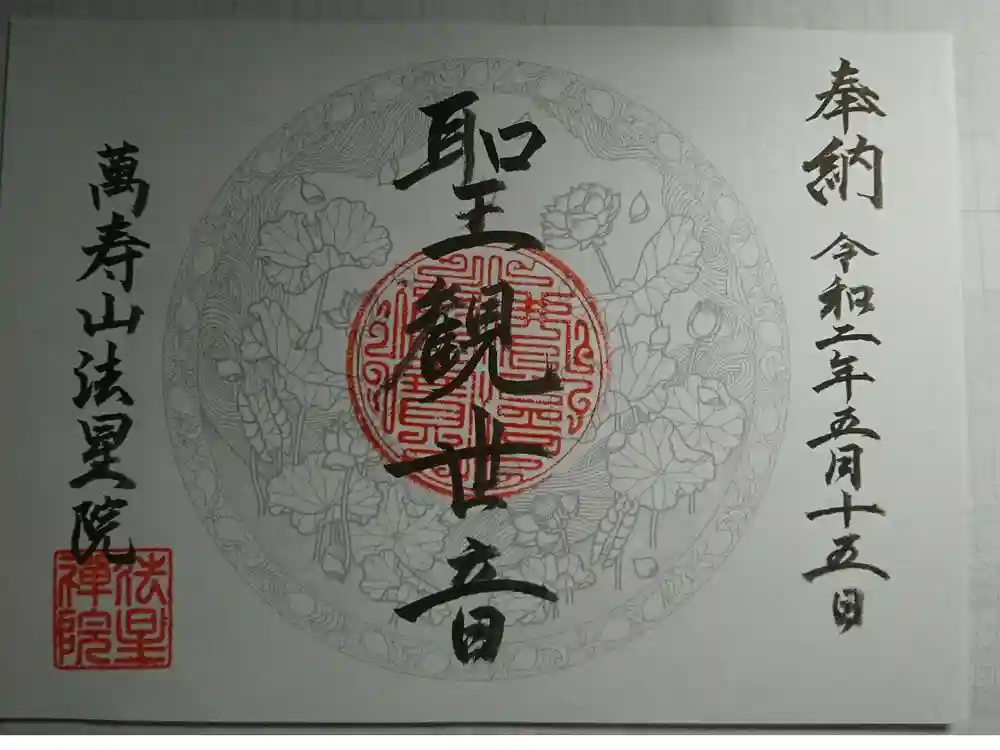 奉納 令和二年五月十五日
聖観世音
萬寿山法星院
法星
禅院